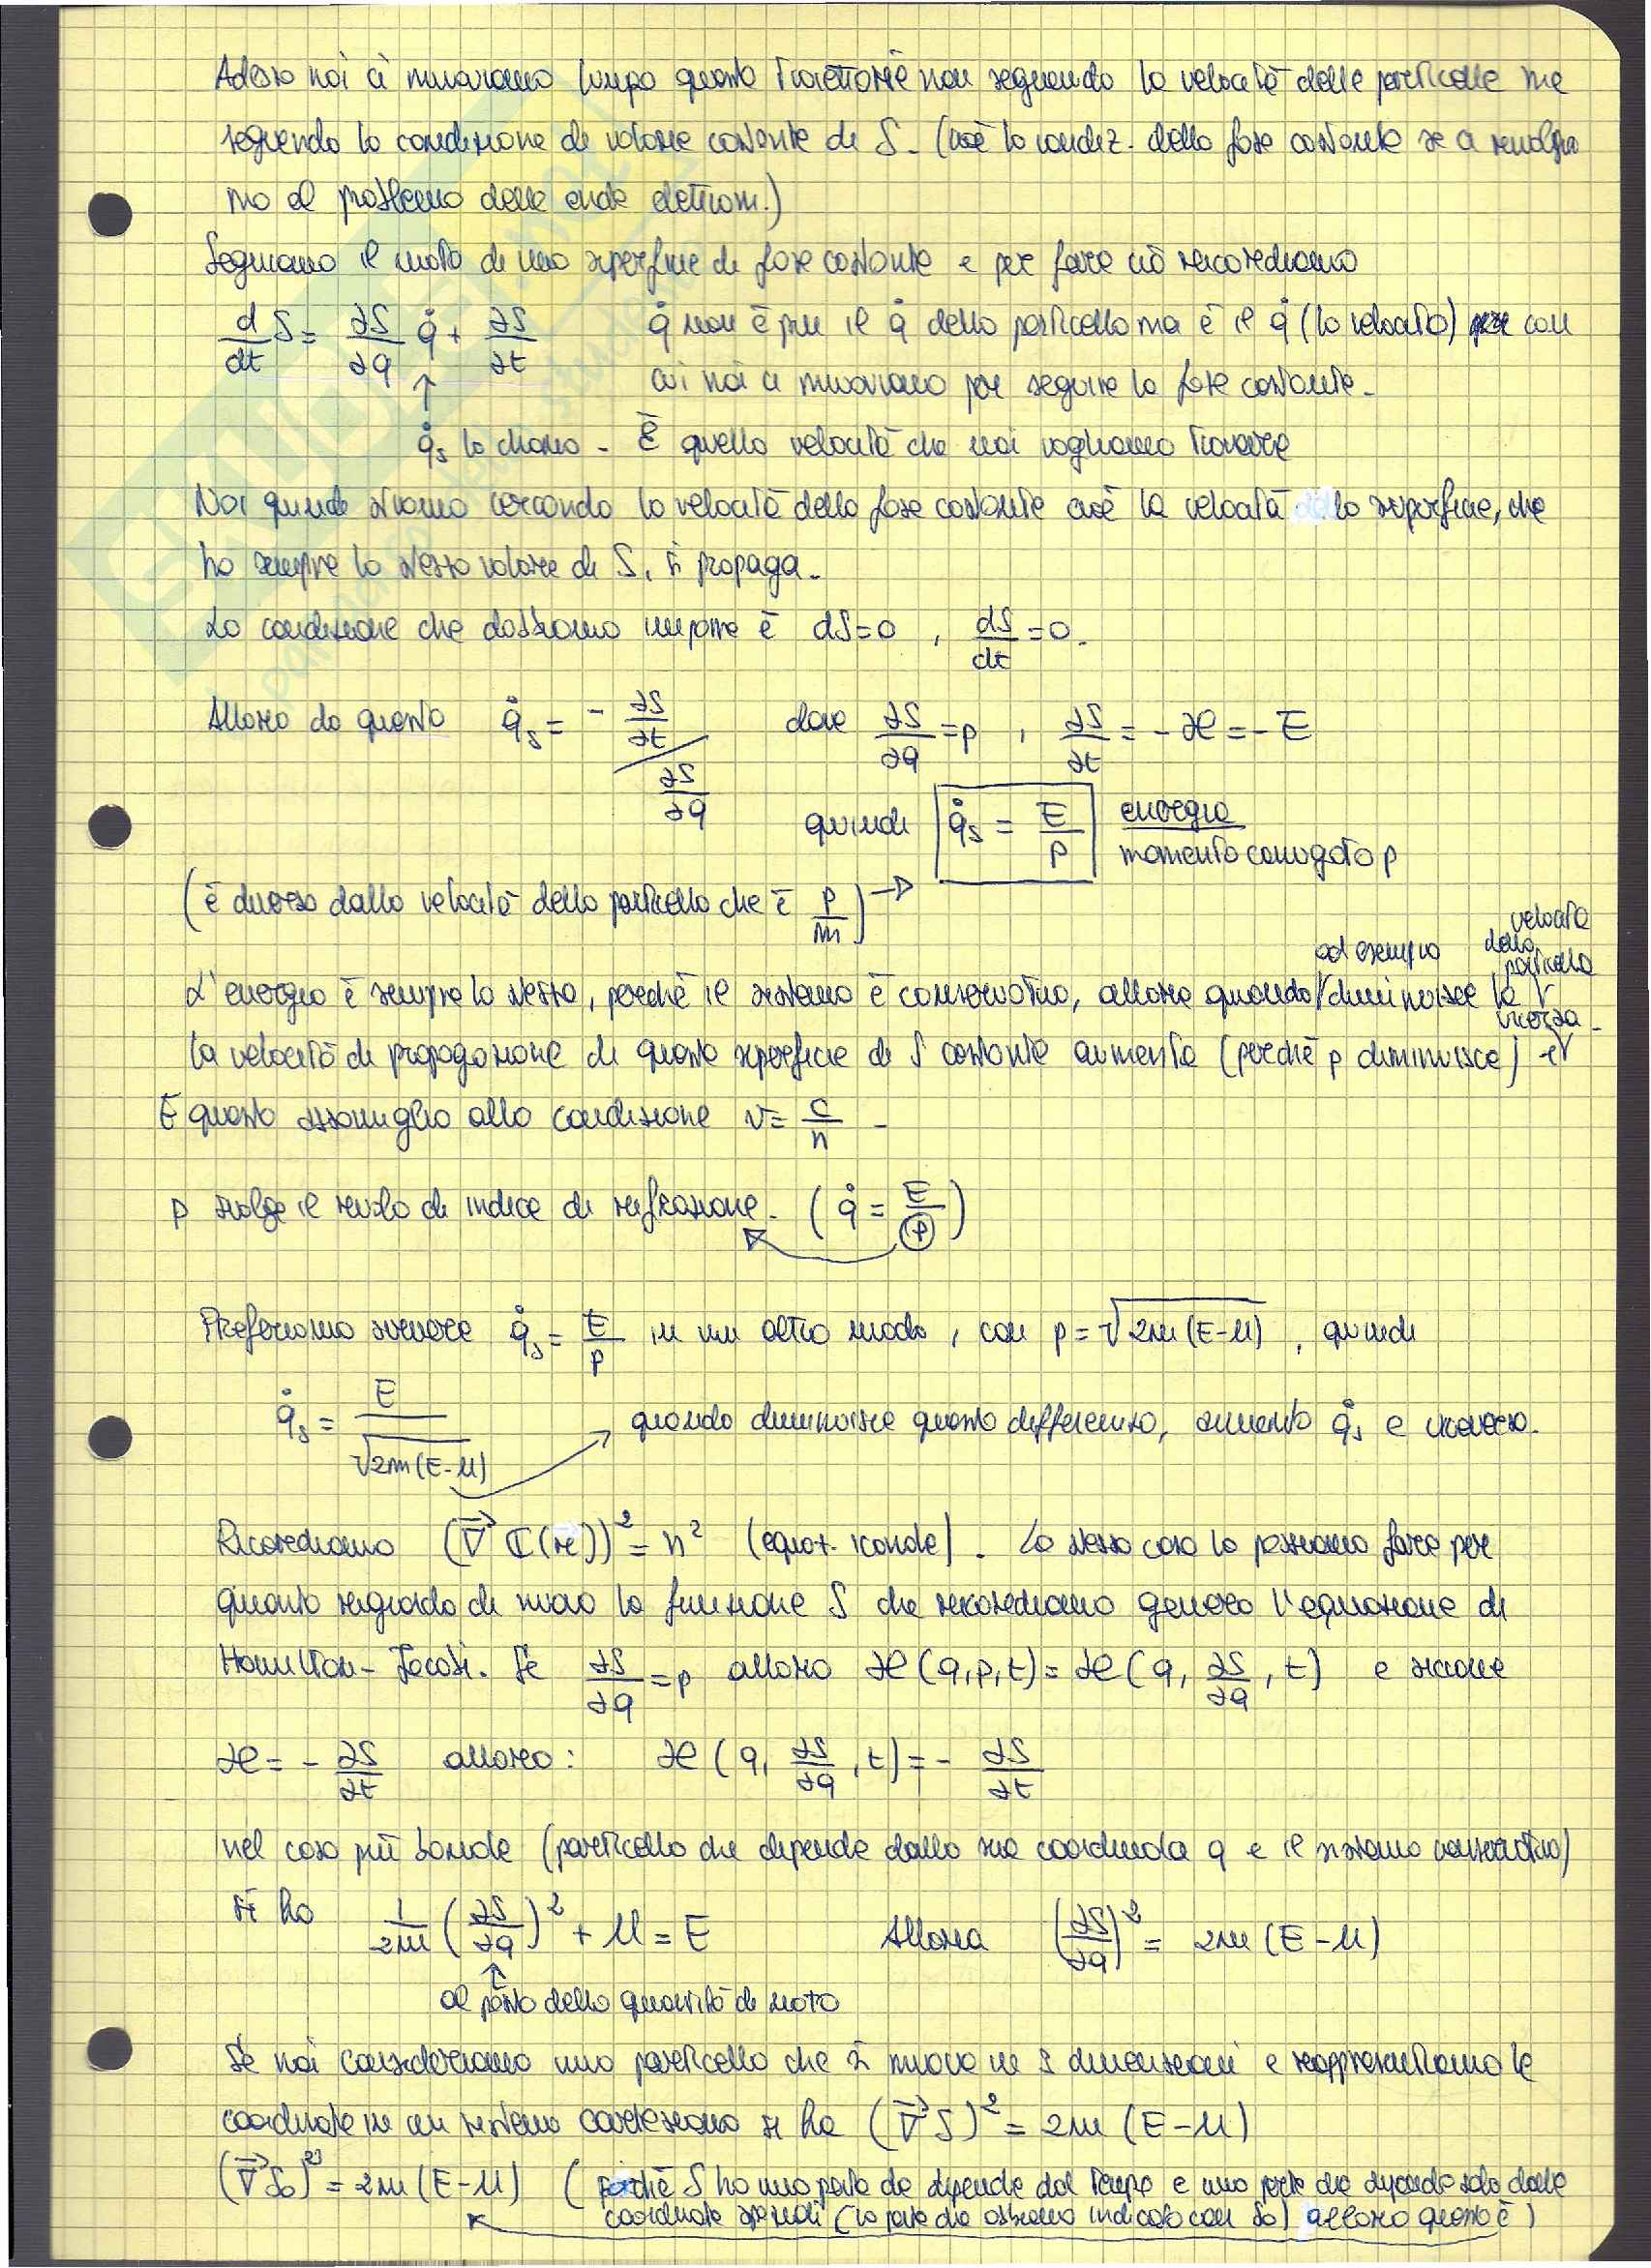 Adesso noi ci muoviamo lungo queste traiettorie non seguendo la velocità delle particelle ma
seguendo la condizione di valore costante di S. (cioè la condiz. della fase costante se ci rivolgia
mo al problema delle onde elettrom.)
Seguiamo il moto di una superficie di fase costante e per fare ciò ricordiamo
d/dt S = ∂S/∂q q̇ + ∂S/∂t   q̇ non è più il q̇ della particella ma è il q̇ (la velocità) con
cui noi ci muoviamo per seguire la fase costante.
↑
q̇s la chiamo - È quella velocità che noi vogliamo trovare
Noi quindi stiamo cercando la velocità della fase costante cioè la velocità la superficie, che
ha sempre lo stesso valore di S, si propaga.
La condizione che dobbiamo imporre è dS=0 , dS/dt = 0.
Allora da questo q̇s = - ∂S/∂t / ∂S/∂q   dove ∂S/∂q = p , ∂S/∂t = -ℋ = -E
quindi q̇s = E/p   energia / momento coniugato p
(è diverso dalla velocità della particella che è p/m) →
L'energia è sempre la stessa, perché il sistema è conservativo, allora quando ad esempio diminuisce la velocità della particella
la velocità di propagazione di questa superficie di S costante aumenta (perché p diminuisce) e viceversa.
E questo assomiglia alla condizione v = c/n -
p svolge il ruolo di indice di rifrazione. (q̇ = E/p)
Preferiamo scrivere q̇s = E/p in un altro modo, con p = √2m(E-U) , quindi
q̇s = E/√2m(E-U) → quando diminuisce questa differenza, aumenta q̇s e viceversa.
Ricordiamo (∇⃗ ℂ(r⃗))² = n² (equaz. iconale). La stessa cosa la possiamo fare per
quanto riguarda di nuovo la funzione S che ricordiamo genera l'equazione di
Hamilton-Jacobi. Se ∂S/∂q = p allora ℋ(q,p,t) = ℋ(q, ∂S/∂q, t) e siccome
ℋ = - ∂S/∂t allora: ℋ(q, ∂S/∂q, t) = - ∂S/∂t
nel caso più banale (particella che dipende dalla sua coordinata q e il sistema conservativo)
si ha 1/2m (∂S/∂q)² + U = E   Allora (∂S/∂q)² = 2m(E-U)
↑
al posto della quantità di moto
Se noi consideriamo una particella che si muove in 3 dimensioni e rappresentiamo le
coordinate in un sistema cartesiano si ha (∇⃗S)² = 2m(E-U)
(∇⃗So)² = 2m(E-U) (poichè S ha una parte che dipende dal tempo e una parte che dipende solo dalle
coordinate spaziali (la parte che abbiamo indicato con So) allora questo è)